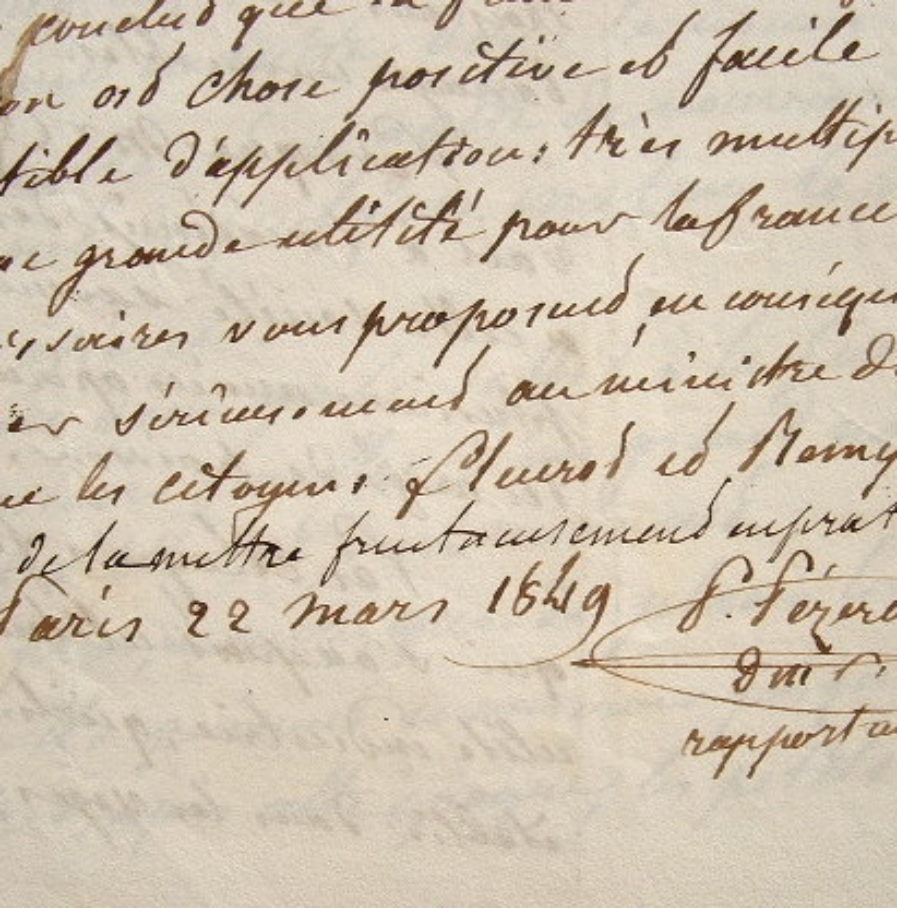 conclud que la
on est chose positive et facile
tible d'application: très multip
ne grande utilité pour la france
ssaires vous proposent, en conséqu
er sérieusement au ministre d
ue les citoyens Flucrot et Remy
de la mettre fructueusement en prat
Paris 22 mars 1849 P. Pézera
rapporta